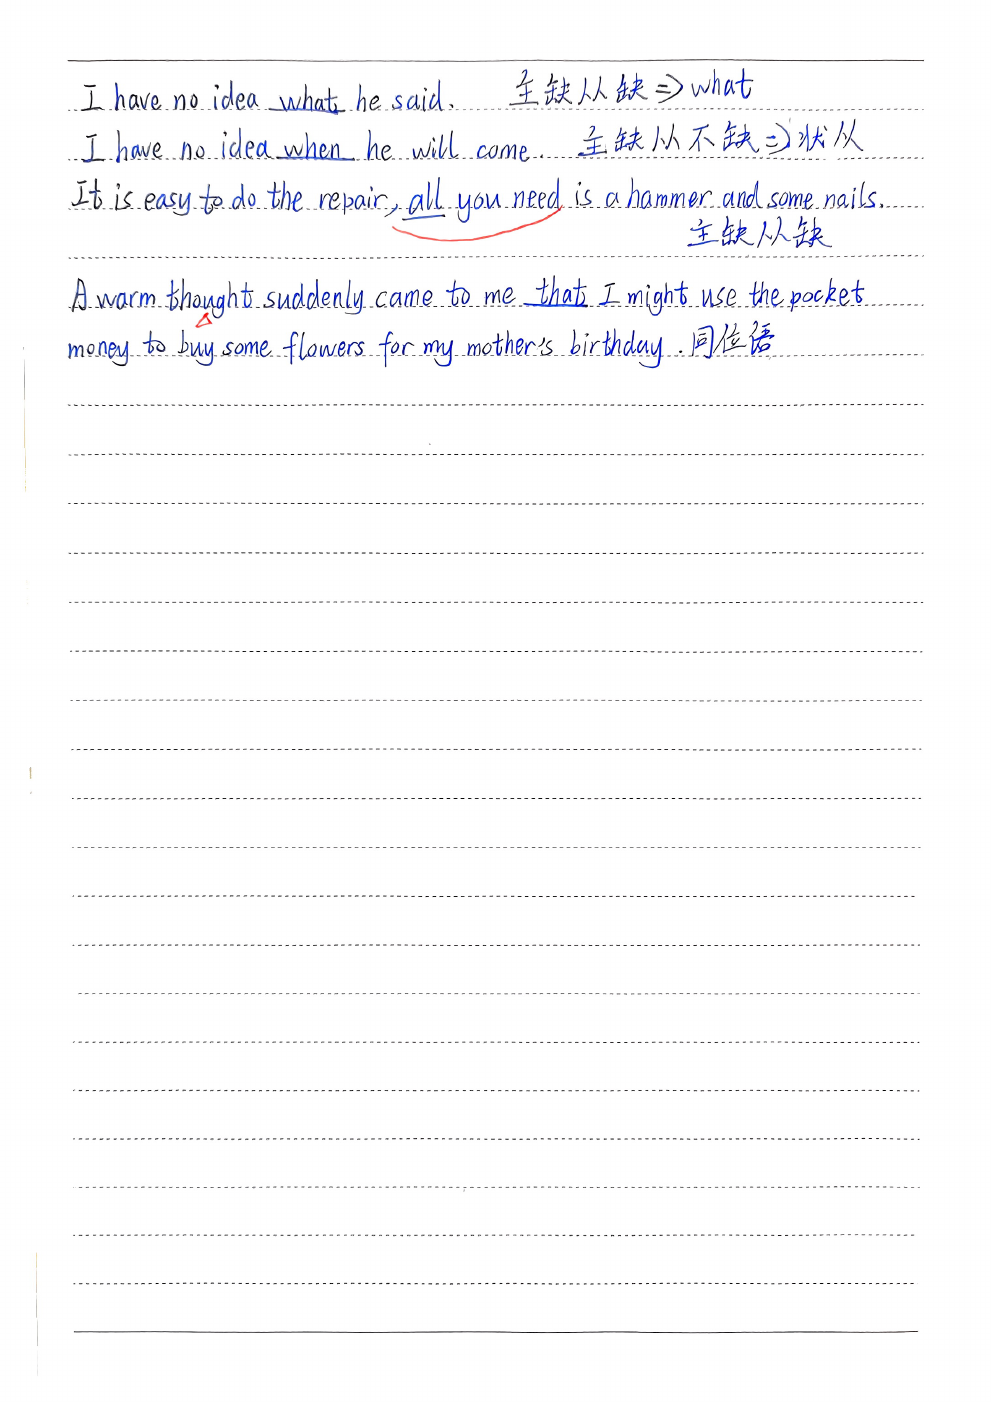 I have no idea what he said. 主缺从缺⇒what
I have no idea when he will come. 主缺从不缺⇒状从
It is easy to do the repair, all you need is a hammer and some nails.
主缺从缺
A warm thought suddenly came to me that I might use the pocket
money to buy some flowers for my mother's birthday. 同位语